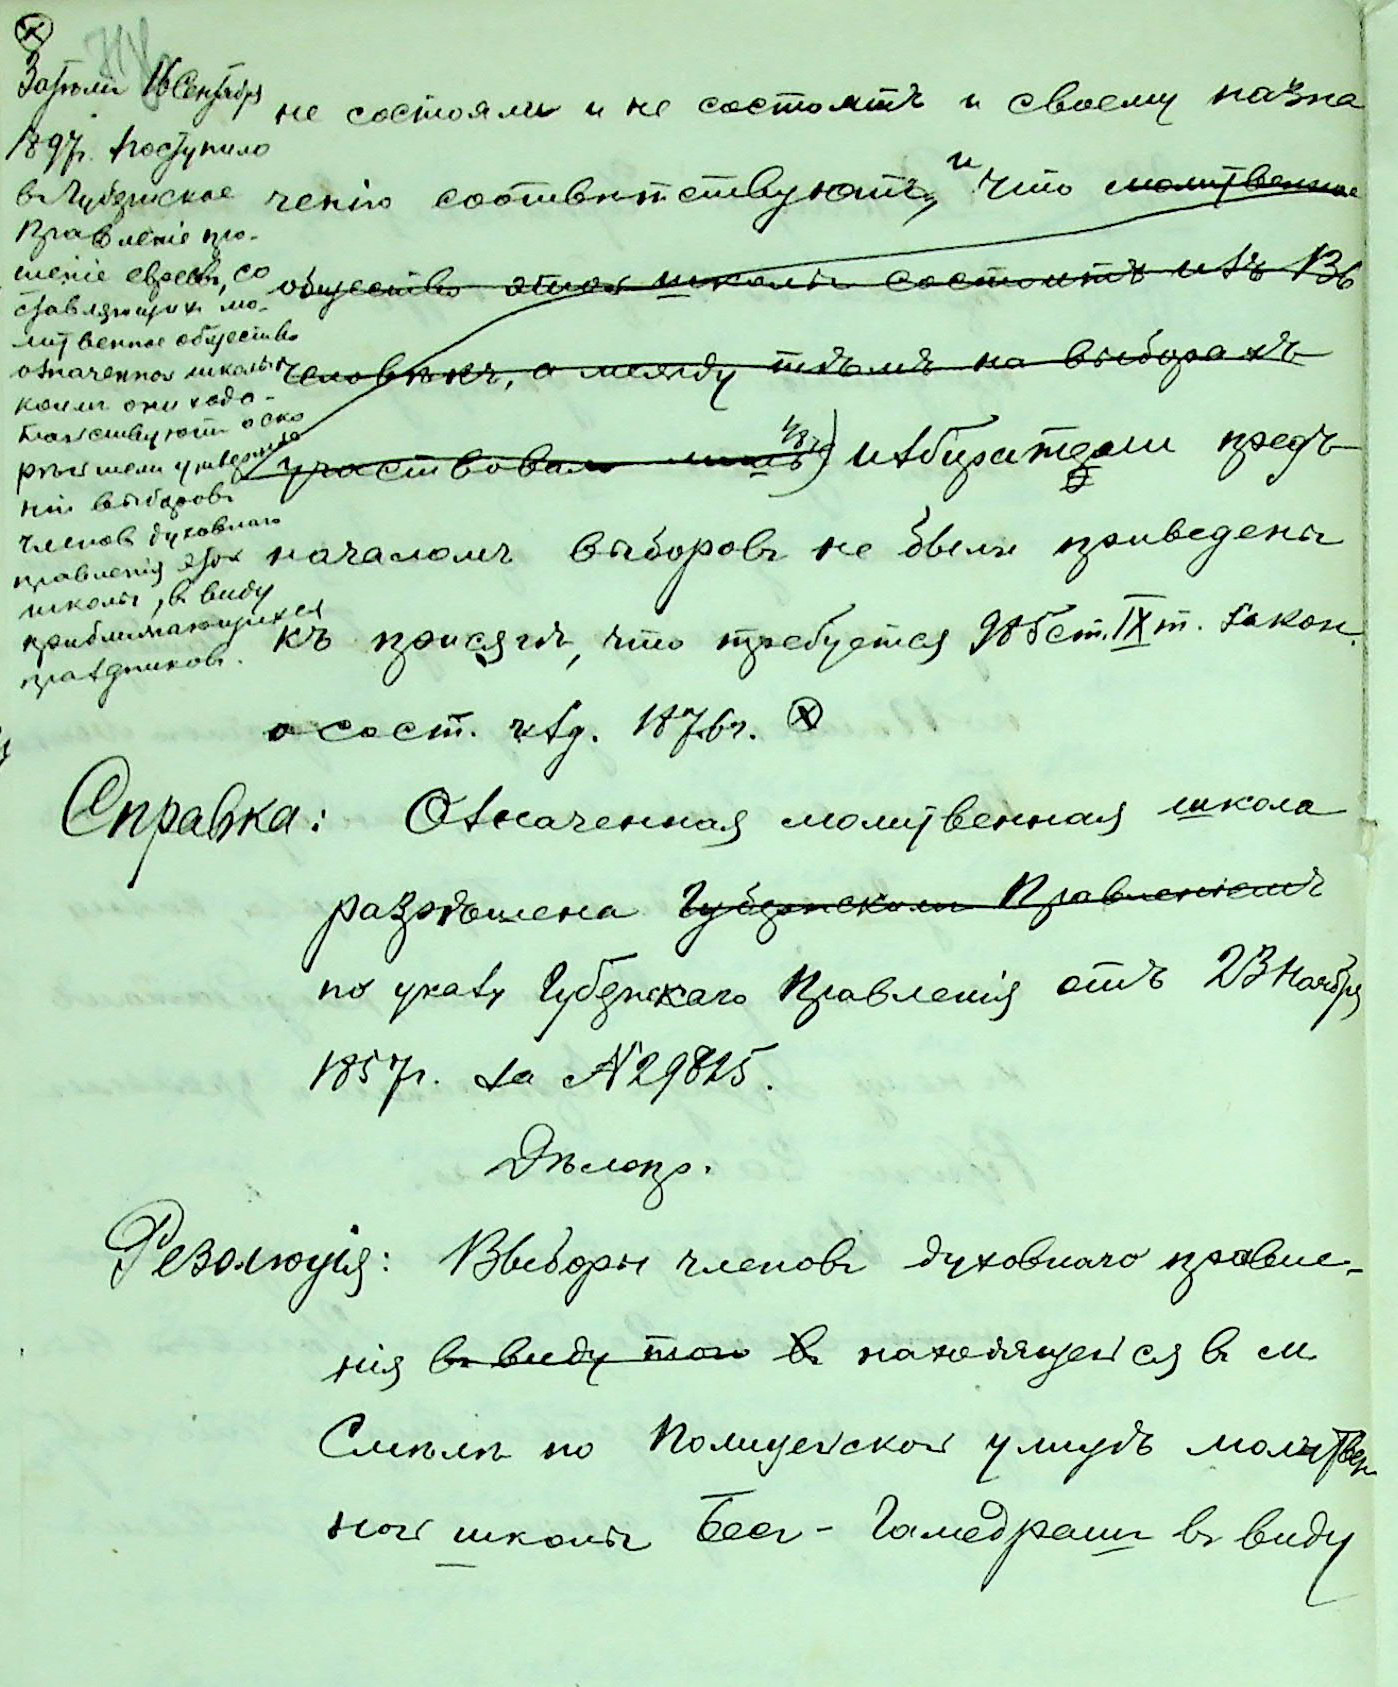 Затѣмъ 16 Сентября
1897г. поступило
въ Губернское
Правленіе про-
шеніе евреевъ, со
ставляющихъ мо-
литвенное общество
означенной школы
коимъ они хода-
тайствуютъ о ско
рѣйшемъ утвержде
ніи выборовъ
членовъ духовнаго
правленія этой
школы, въ виду
приближающихся
праздниковъ.
не состояли и не состоятъ и своему назна
ченію соотвѣтствуютъ, и что молитвенное
общество этой школы состоитъ изъ 136
человѣкъ, а между тѣмъ на выборахъ
участвовало лишь) избиратели предъ
началомъ выборовъ не были приведены
къ присягѣ, что требуется 985 ст. IX т. Закон.
о сост. изд. 1876г.
Справка: Означенная молитвенная школа
разрѣшена Губернскимъ Правленіемъ
по указу Губернскаго Правленія отъ 23 Ноября
1857г. за № 29825.
Дѣлопр.
Резолюція: Выборы членовъ духовнаго правле-
нія въ виду того въ находящейся въ м.
Смѣлѣ по Полицейской улицѣ молитвен
ной школы Бес-Гамедрашъ въ виду